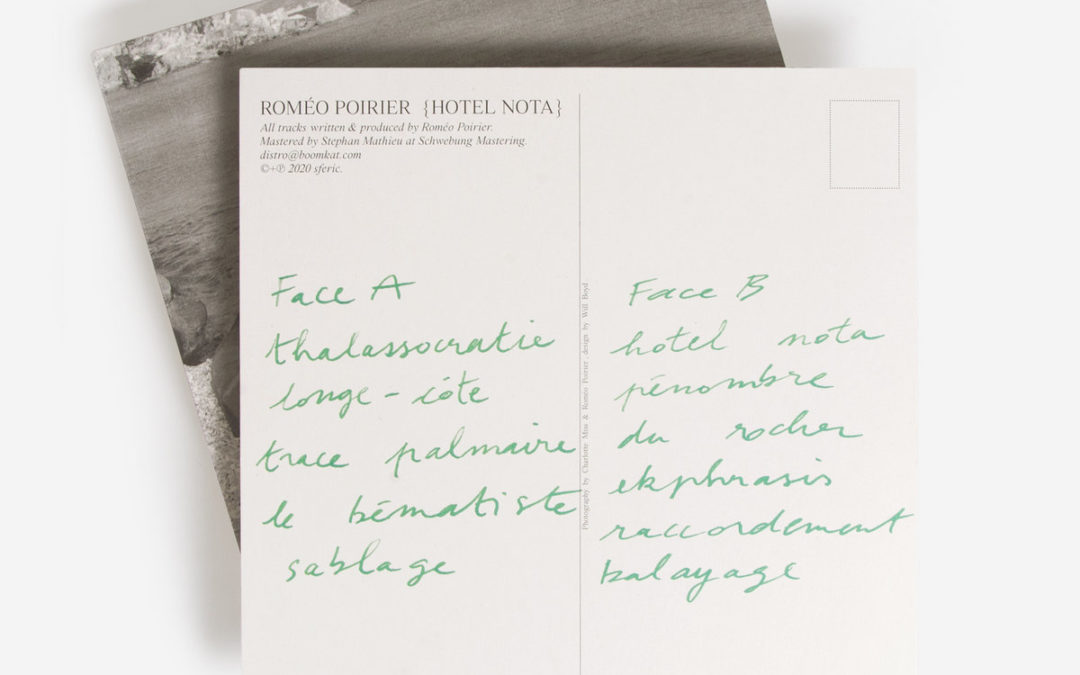 ROMÉO POIRIER {HOTEL NOTA}
All tracks written & produced by Roméo Poirier.
Mastered by Stephan Mathieu at Schwebung Mastering.
distro@boomkat.com
©+℗ 2020 sferic.
Face A
thalassocratie
longe-côte
trace palmaire
le bématiste
sablage
Photography by Charlotte Mano & Roméo Poirier design by Will Boyd
Face B
hotel nota
pénombre
du rocher
ekphrasis
raccordement
balayage